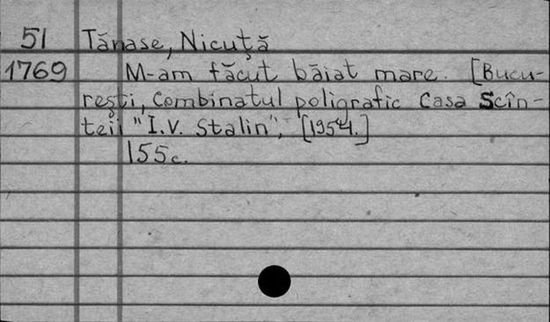 51 Tănase, Nicuță
1769 M-am făcut băiat mare. [Bucu-
rești, Combinatul poligrafic Casa Scîn-
teii "I.V. Stalin", [1954.]
155c.